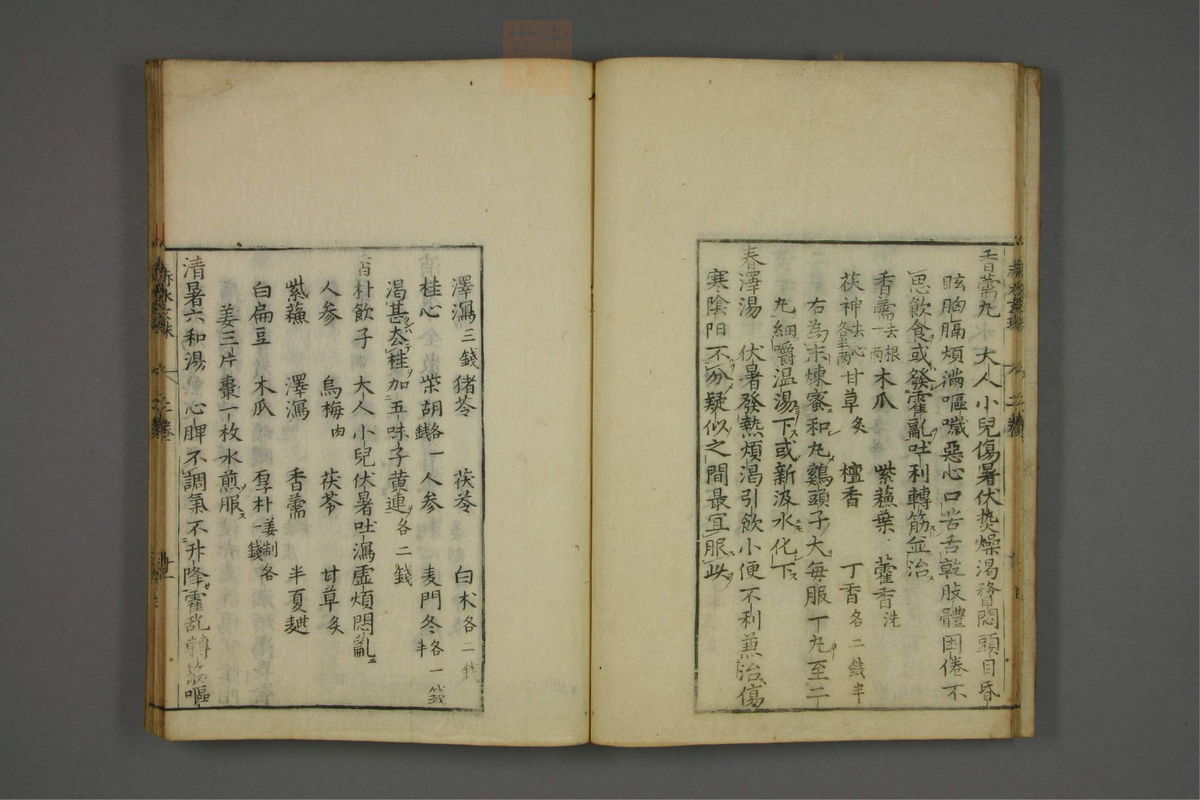 香薷丸 大人小兒傷暑伏熱燥渴瞀悶頭目昏
眩胸膈煩滿嘔噦惡心口苦舌乾肢體困倦不
思飲食或發霍亂吐利轉筋並治
香薷去根一兩 木瓜 紫蘇葉 藿香洗
茯神去心各半兩 甘草炙 檀香 丁香各二錢半
右為末煉蜜和丸雞頭子大每服一丸至二
丸細嚼温湯下或新汲水化下
春澤湯 伏暑發熱煩渴引飲小便不利兼治傷
寒陰陽不分疑似之間最宜服此
澤瀉三錢 猪苓 茯苓 白朮各二錢
桂心 柴胡各一錢 人参 麦門冬各一錢半
渴甚去桂加五味子黄連各二錢
香朴飲子 大人小兒伏暑吐瀉虛煩悶亂
人参 烏梅肉 茯苓 甘草炙
紫蘇 澤瀉 香薷 半夏麯
白扁豆 木瓜 厚朴姜制各一錢
姜三片棗一枚水煎服
清暑六和湯 心脾不調氣不升降霍乱轉筋嘔